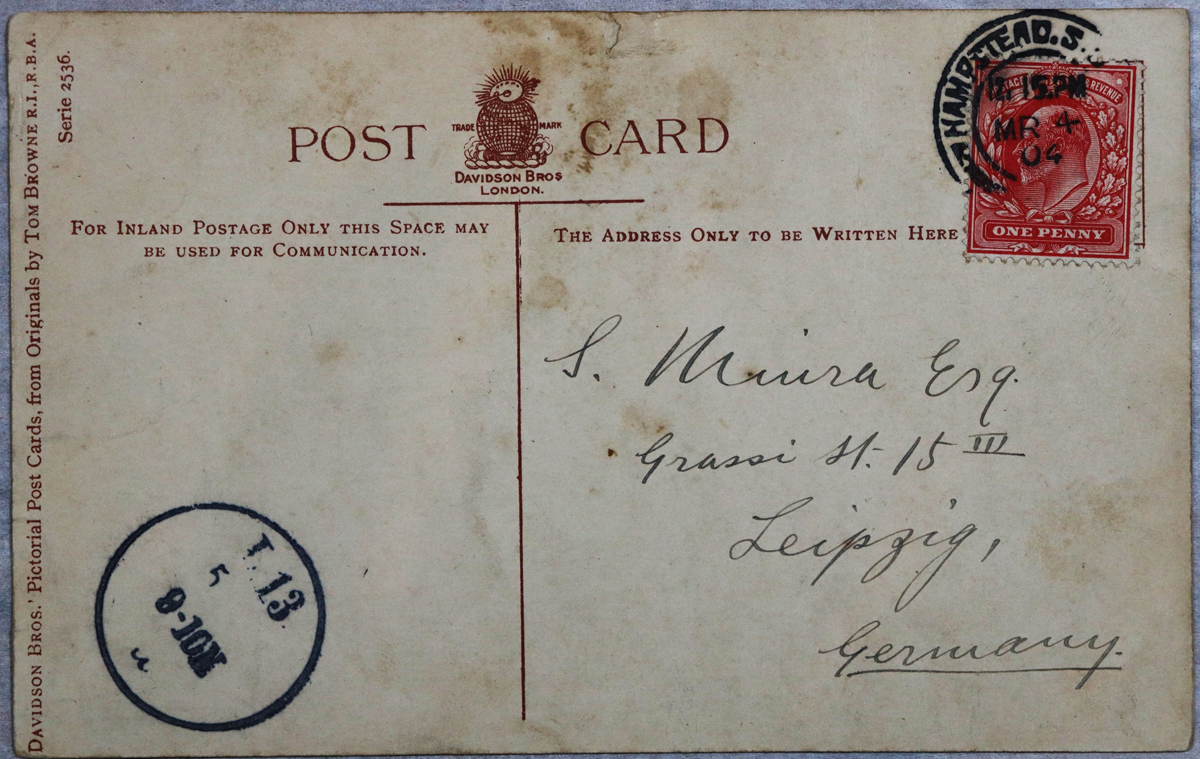 DAVIDSON BROS.' Pictorial Post Cards, from Originals by TOM BROWNE R.I., R.B.A.
Serie 2536.
POST CARD
TRADE MARK
DAVIDSON BROS
LONDON.
FOR INLAND POSTAGE ONLY THIS SPACE MAY
BE USED FOR COMMUNICATION.
THE ADDRESS ONLY TO BE WRITTEN HERE
HAMPSTEAD. S.
15.PM
MR 4
04
POSTAGE REVENUE
ONE PENNY
S. Miura Esq.
Grassi St. 15 III
Leipzig,
Germany.
T. 13.
5
9-10N